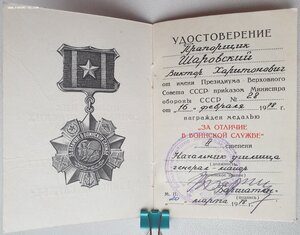 УДОСТОВЕРЕНИЕ
Прапорщик
Шаровский
Виктор Харитонович
от имени Президиума Верховного
Совета СССР приказом Министра
обороны СССР № 28
от "16" февраля 1978 г.
награжден медалью
"ЗА ОТЛИЧИЕ
В ВОИНСКОЙ СЛУЖБЕ"
II степени
Начальник училища
генерал-майор
М. П.
марта